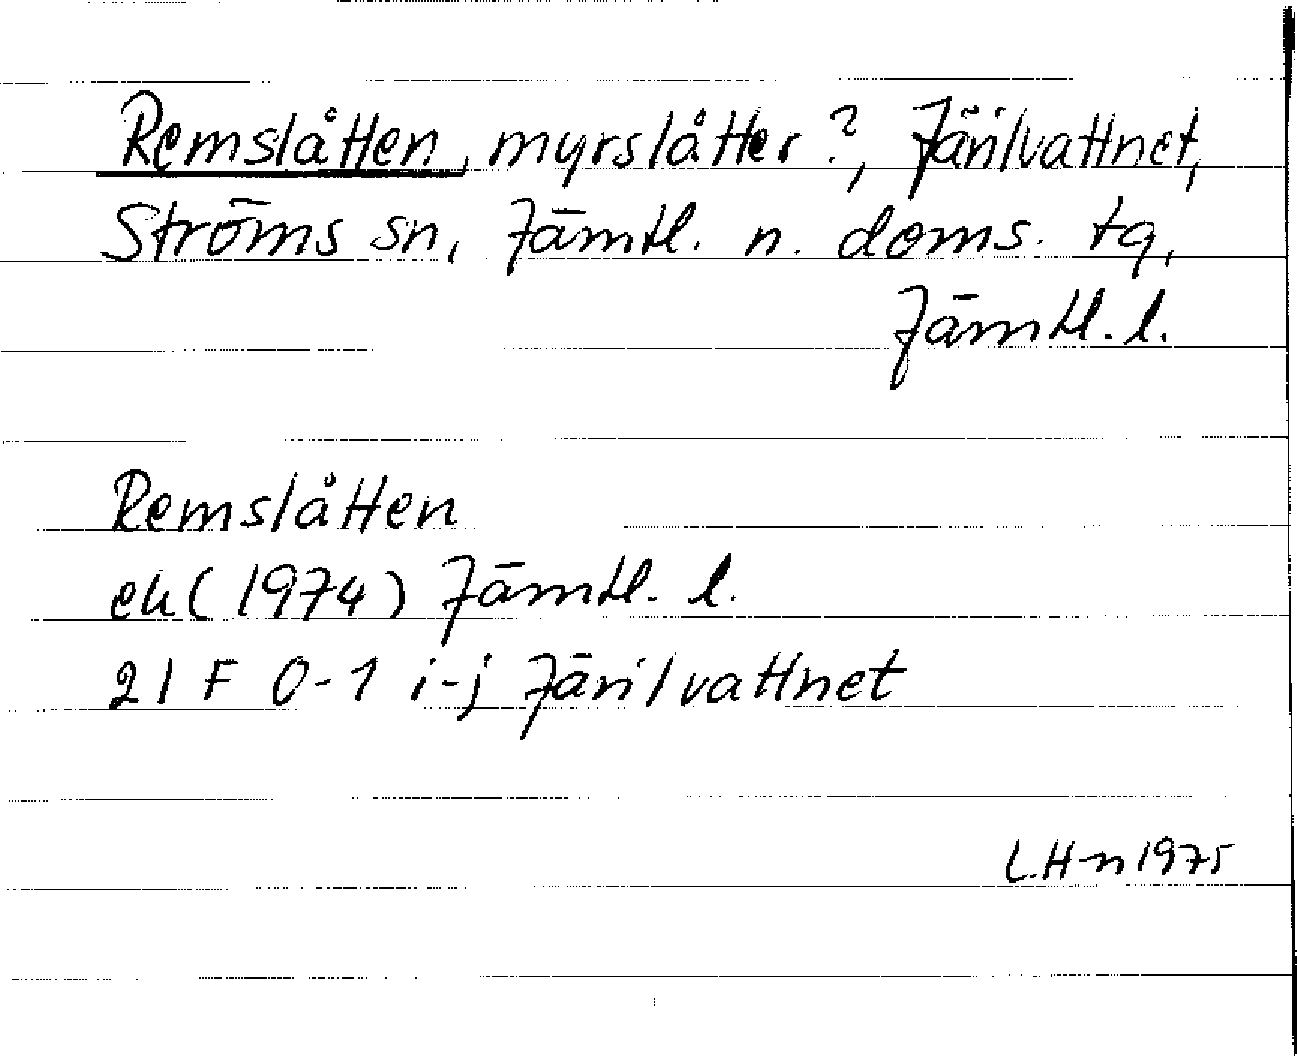 Remslåtten, myrslåtter?, Järilvattnet,
Ströms sn, Jämtl. n. doms. tg,
Jämtl. l.
Remslåtten
ek (1974) Jämtl. l.
21 F 0-1 i-j Järilvattnet
L.H-n 1975